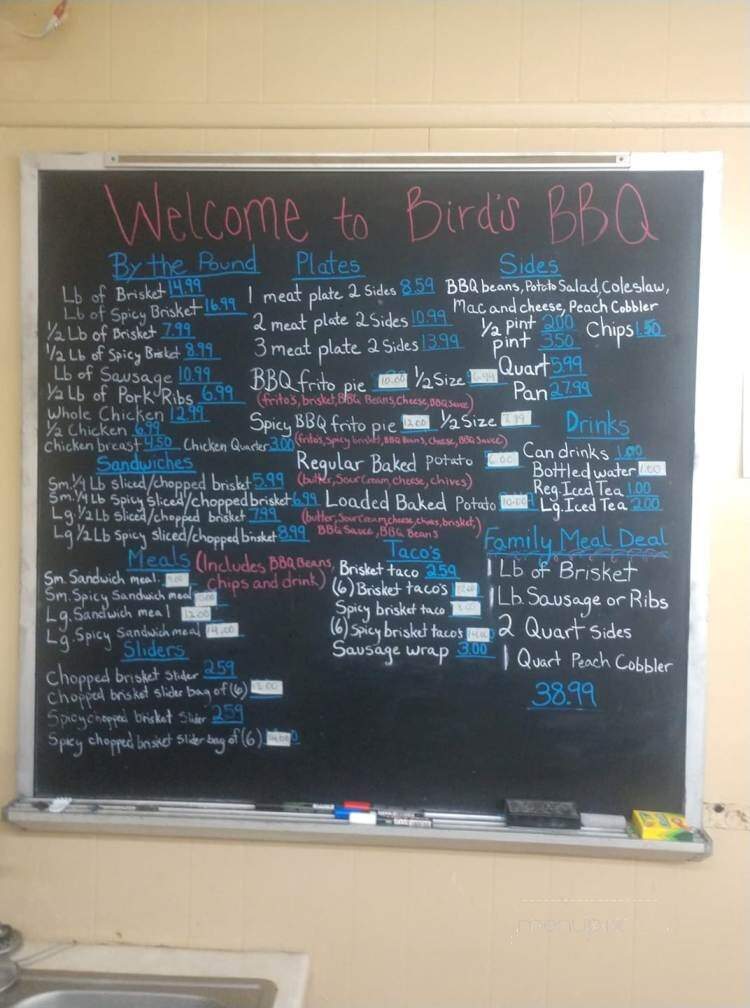 Welcome to Bird's BBQ
By the Pound
Lb of Brisket 14.99
Lb of Spicy Brisket 16.99
1/2 Lb of Brisket 7.99
1/2 Lb of Spicy Brisket 8.99
Lb of Sausage 10.99
1/2 Lb of Pork Ribs 6.99
Whole Chicken 12.99
1/2 Chicken 6.99
chicken breast 4.50 Chicken Quarter 3.00
Sandwiches
Sm. 1/4 Lb sliced/chopped brisket 5.99
Sm. 1/4 Lb Spicy sliced/chopped brisket 6.99
Lg. 1/2 Lb sliced/chopped brisket 7.99
Lg 1/2 Lb Spicy sliced/chopped brisket 8.99
Meals (Includes BBQ Beans,
chips and drink)
Sm. Sandwich meal
Sm. Spicy Sandwich meal
Lg. Sandwich meal 12.00
Lg. Spicy Sandwich meal 14.00
Sliders
Chopped brisket slider 2.59
Chopped brisket slider bag of (6)
Spicy chopped brisket Slider 2.59
Spicy chopped brisket slider bag of (6)
Plates
1 meat plate 2 Sides 8.59
2 meat plate 2 Sides 10.99
3 meat plate 2 Sides 13.99
BBQ frito pie 10.00 1/2 Size
(frito's, brisket, BBQ Beans, Cheese, BBQ sauce)
Spicy BBQ frito pie 12.00 1/2 Size
(frito's, spicy brisket, BBQ Beans, cheese, BBQ Sauce)
Regular Baked Potato
(butter, Sour Cream, Cheese, chives)
Loaded Baked Potato 10.00
(butter, Sour Cream, cheese, chives, brisket,
BBQ Sauce, BBQ Beans)
Taco's
Brisket taco 2.59
(6) Brisket taco's
Spicy brisket taco
(6) Spicy brisket taco's
Sausage wrap 3.00
Sides
BBQ beans, Potato Salad, Coleslaw,
Mac and cheese, Peach Cobbler
1/2 pint 2.00 Chips 1.50
pint 3.50
Quart 5.99
Pan 27.99
Drinks
Can drinks 1.00
Bottled water 1.00
Reg. Iced Tea 1.00
Lg. Iced Tea 2.00
Family Meal Deal
1 Lb of Brisket
1 Lb. Sausage or Ribs
2 Quart sides
1 Quart Peach Cobbler
38.99
menupix